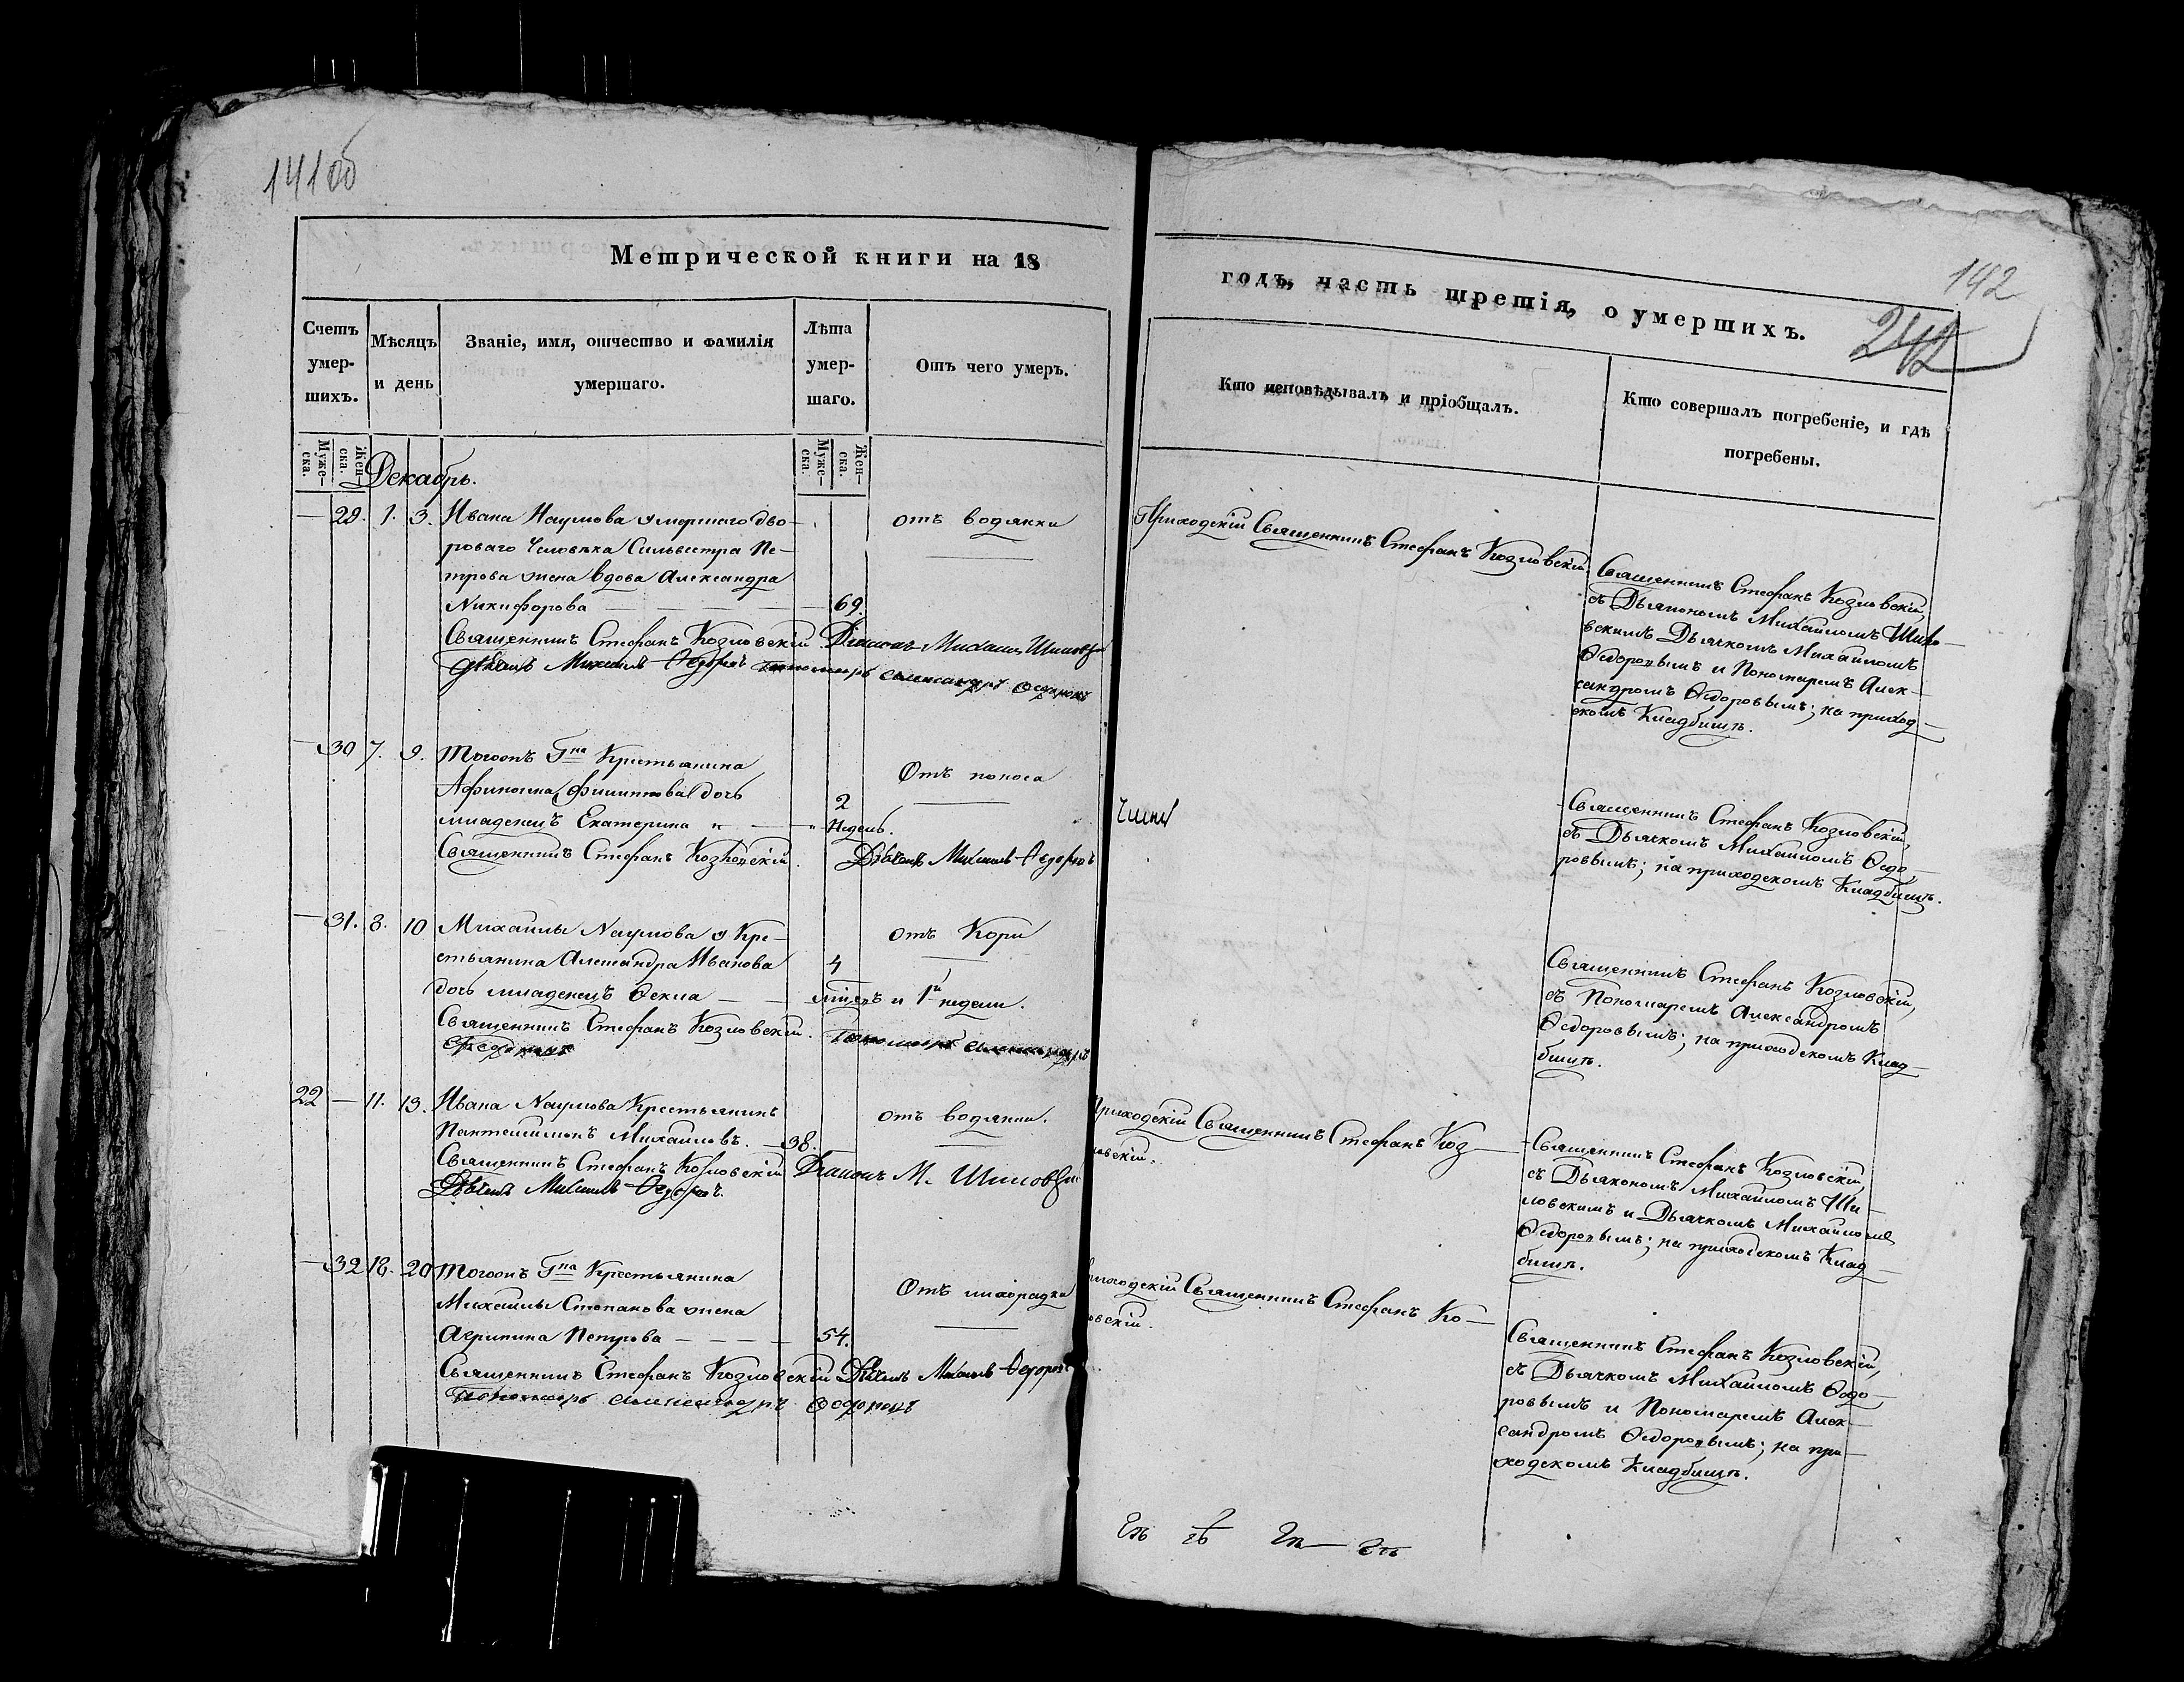 141 об
142
242
Метрической книги на 18
годъ, часть третія, о умершихъ.
Счетъ умер-
шихъ.
Мѣсяцъ
и день
Званіе, имя, отчество и фамилія
умершаго.
Лѣта
умер-
шаго.
Отъ чего умеръ.
Кто исповѣдывалъ и пріобщалъ.
Кто совершалъ погребеніе, и гдѣ
погребены.
Муже-
ска.
Жен-
ска.
Муже-
ска.
Жен-
ска.
Декабрь.
— 29. 1. 3. Ивана Наумова умершаго дво-
роваго Человѣка Сильвестра Пе-
трова жена вдова Александра
Никифорова — — — — — 69.
отъ водянки
Священникъ Стефанъ Козловскій Діаконъ Михаилъ Шиловскій
Дьячекъ Михаилъ Ѳедоровъ Пономарь Александръ Ѳедоровъ
Приходскій Священникъ Стефанъ Козловскій.
Священникъ Стефанъ Козловскій,
съ Дьякономъ Михаиломъ Шило-
вскимъ Дьячкомъ Михаиломъ
Ѳедоровымъ и Пономаремъ Алек-
сандромъ Ѳедоровымъ; на приход-
скомъ Кладбищѣ.
— 30 7. 9. Тогожъ Гна Крестьянина
Филиппова дочь
младенецъ Екатерина " — "
2
Недель.
Отъ поноса
Священникъ Стефанъ Козловскій. Дьячекъ Михаилъ Ѳедоровъ
Священникъ Стефанъ Козловскій,
съ Дьячкомъ Михаиломъ Ѳедо-
ровымъ; на приходскомъ Кладбищѣ.
— 31. 8. 10 Михайлы Наумова Кре-
стьянина Александра Иванова
дочь младенецъ Ѳекла — —
4
мѣсцъ и 1й недели.
отъ Кори
Священникъ Стефанъ Козловскій. Пономарь Александръ
Ѳедоровъ
Священникъ Стефанъ Козловскій,
съ Пономаремъ Александромъ
Ѳедоровымъ; на приходскомъ Клад-
бищѣ.
22 — 11. 13. Ивана Наумова Крестьянинъ
Пантелимонъ Михаиловъ. — 38.
отъ водянки.
Священникъ Стефанъ Козловскій Діаконъ М. Шиловскій
Дьячекъ Михаилъ Ѳедоровъ.
Приходскій Священникъ Стефанъ Коз-
ловскій.
Священникъ Стефанъ Козловскій,
съ Дьякономъ Михаиломъ Ши-
ловскимъ и Дьячкомъ Михаиломъ
Ѳедоровымъ; на приходскомъ Клад-
бищѣ.
— 32 18. 20 Тогожъ Гна Крестьянина
Михайлы Степанова жена
Агрипина Петрова — — — — 54.
Отъ лихорадки
Священникъ Стефанъ Козловскій Дьячекъ Михаилъ Ѳедоровъ
Пономарь Александръ Ѳедоровъ
Приходскій Священникъ Стефанъ Ко-
зловскій.
Священникъ Стефанъ Козловскій,
съ Дьячкомъ Михаиломъ Ѳедо-
ровымъ и Пономаремъ Алек-
сандромъ Ѳедоровымъ; на при-
ходскомъ Кладбищѣ.